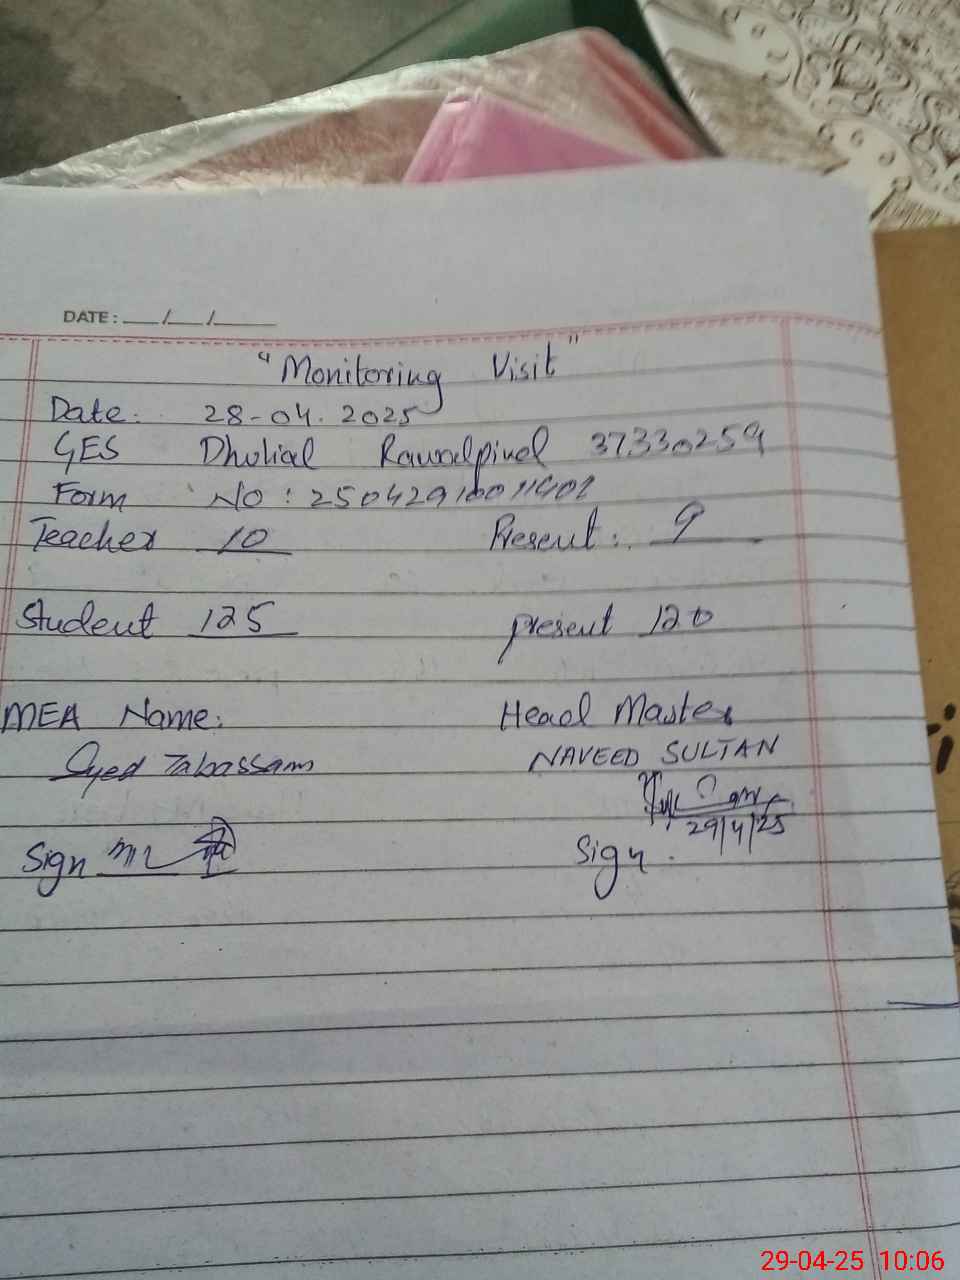 DATE: ___/___/_____
"Monitoring Visit"
Date: 28-04.2025
GES Dholial Rawalpinel 37330259
Form No: 25042910011402
Teacher 10 Present: 9
Student 125 present 120
MEA Name: Head Master
Syed Tabassam NAVEED SULTAN
29/4/25
Sign Sign.
29-04-25 10:06